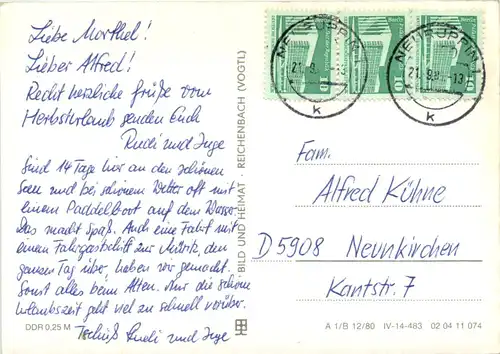 Liebe Marthel!
Lieber Alfred!
Recht herzliche Grüße vom
Herbsturlaub senden Euch
Rudi und Inge
Sind 14 Tage hier an den schönen
Seen und bei schönem Wetter oft mit
einem Paddelboot auf dem Wasser.
Das macht Spaß. Auch eine Fahrt mit
einem Fahrgastschiff zur Müritz, den
ganzen Tag über, haben wir gemacht.
Sonst alles beim Alten. Nur die schöne
Urlaubszeit geht viel zu schnell vorüber.
Tschüß Rudi und Inge
DDR 0,25 M
BILD UND HEIMAT · REICHENBACH (VOGTL)
NEURUPPIN 1
21.9.
k
NEURUPPIN 1
21.9.
k
10
10
10
Fam.
Alfred Kühne
D 5908 Neunkirchen
Kantstr. 7
A 1/B 12/80 IV-14-483 02 04 11 074